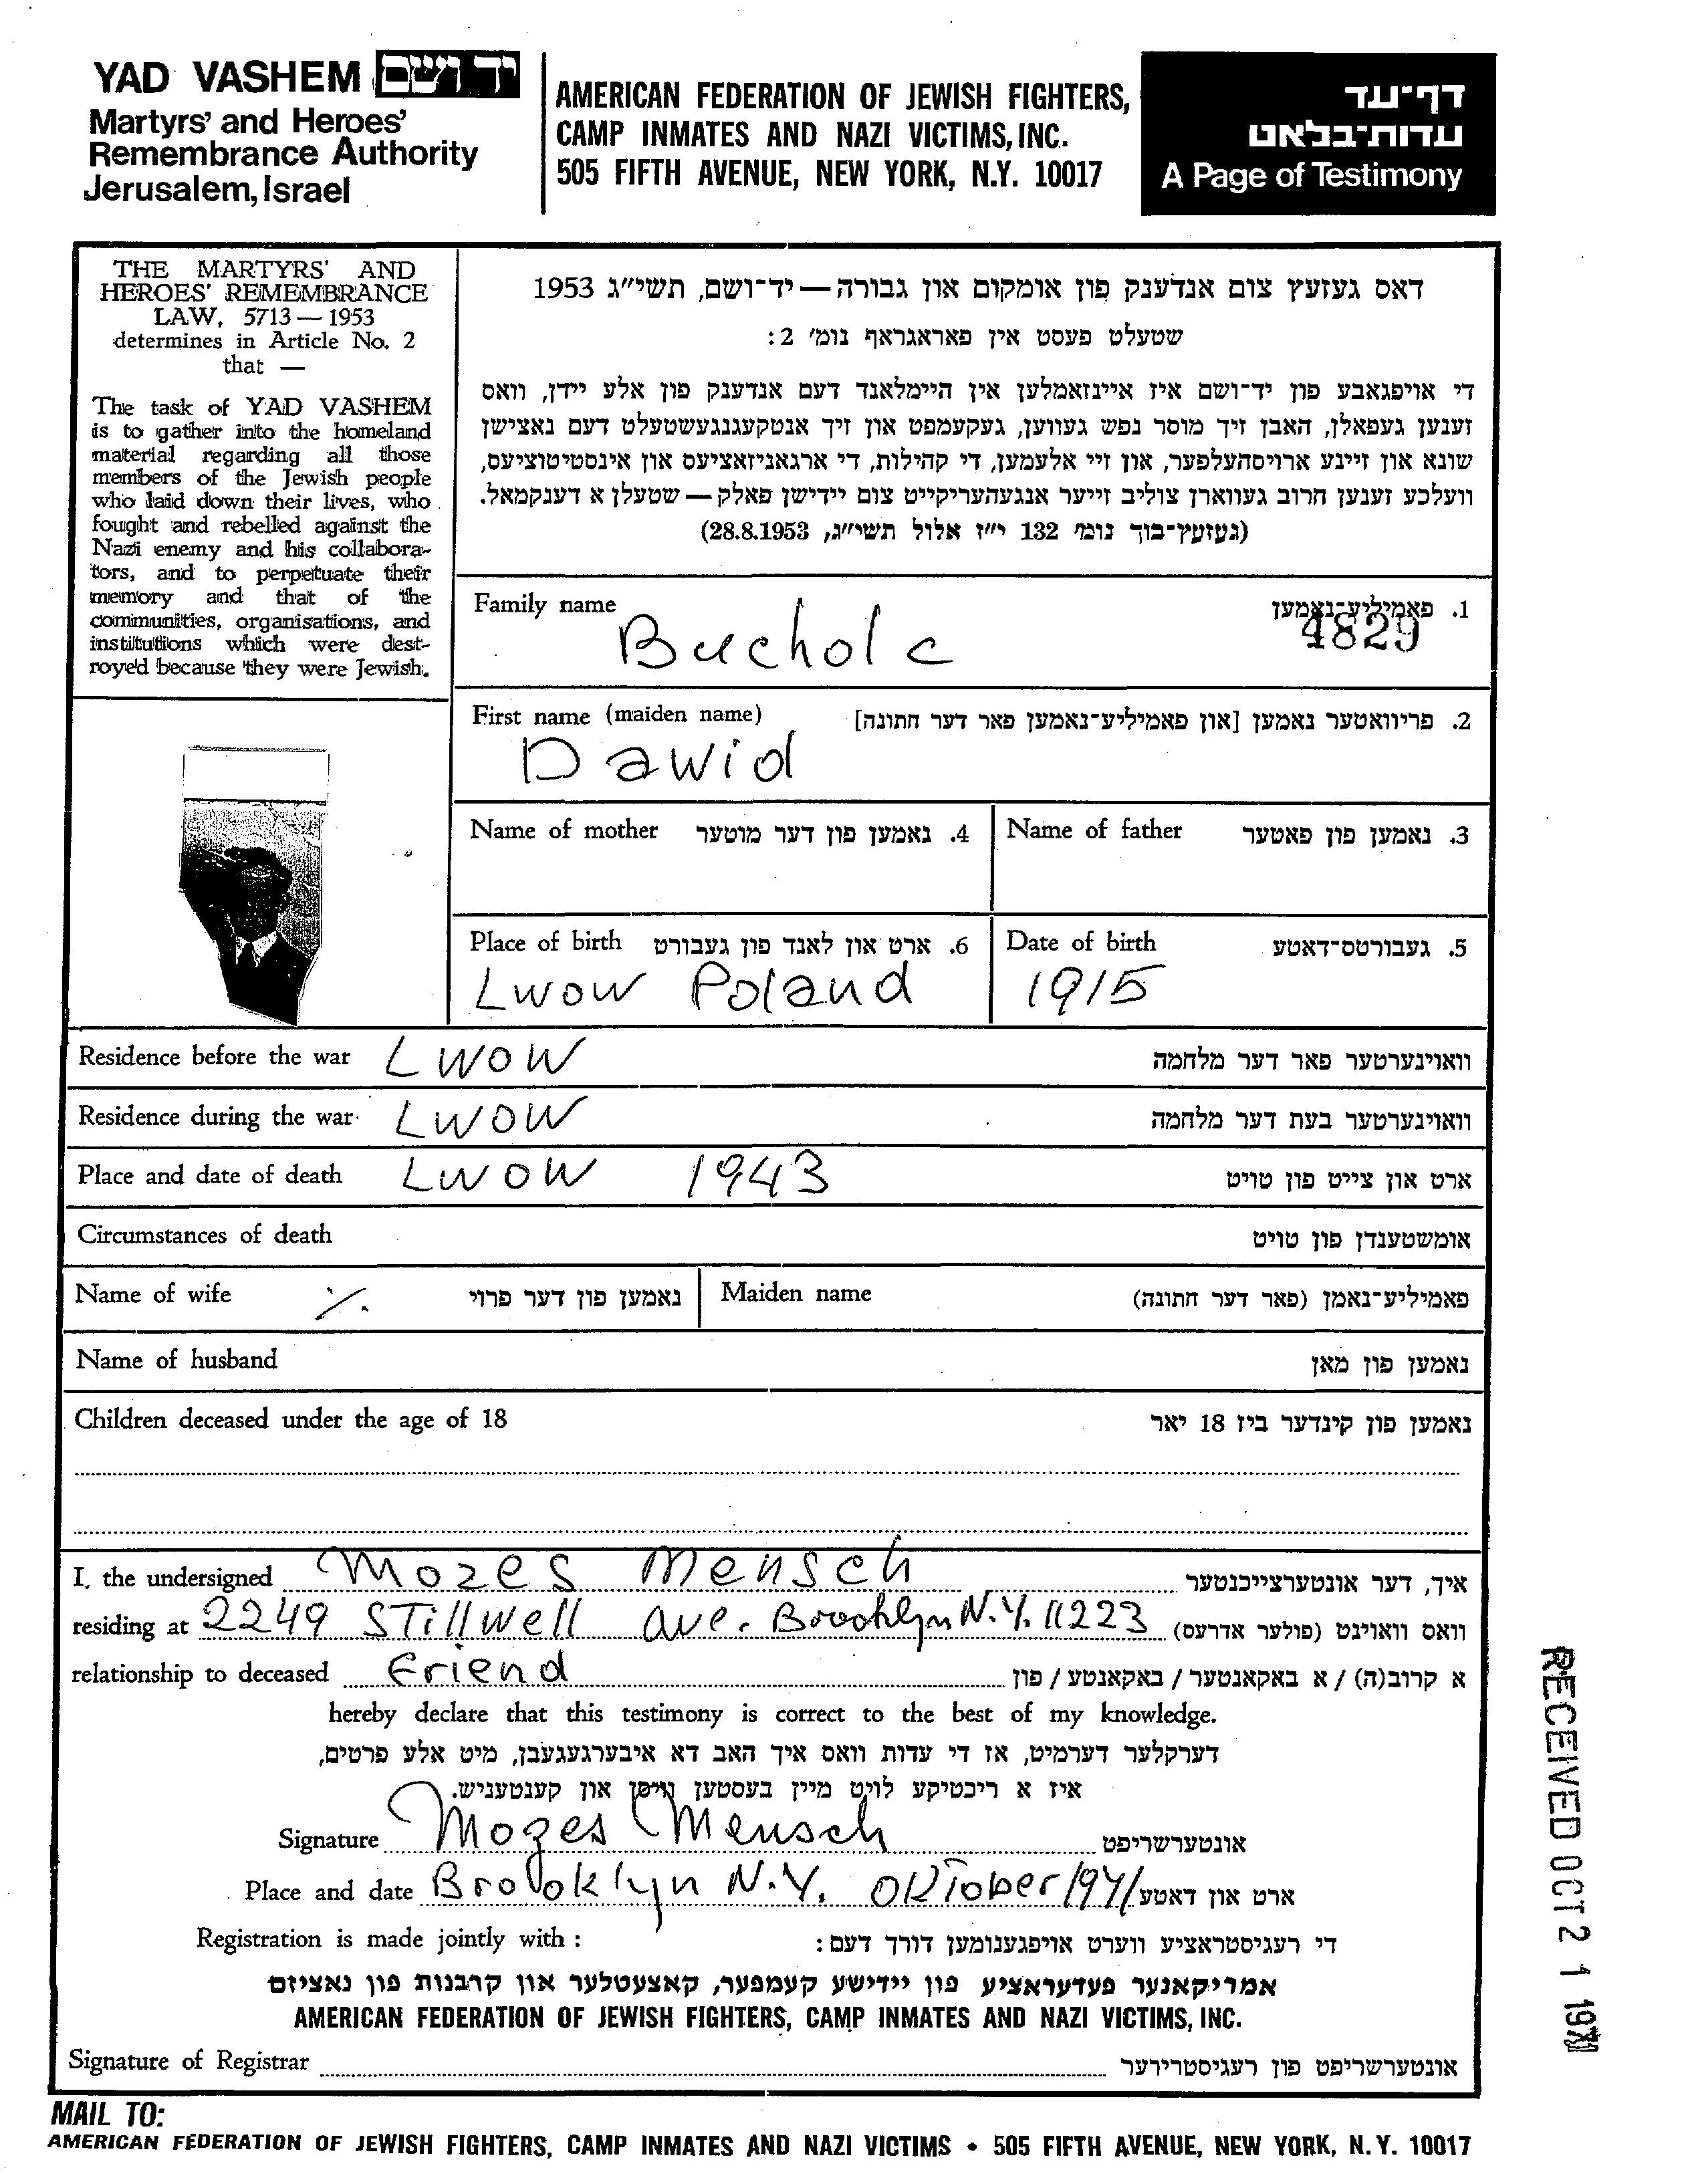 YAD VASHEM יד ושם
Martyrs' and Heroes'
Remembrance Authority
Jerusalem, Israel
AMERICAN FEDERATION OF JEWISH FIGHTERS,
CAMP INMATES AND NAZI VICTIMS, INC.
505 FIFTH AVENUE, NEW YORK, N.Y. 10017
דף-עד
עדות-בלאט
A Page of Testimony
THE MARTYRS' AND
HEROES' REMEMBRANCE
LAW, 5713 — 1953
determines in Article No. 2
that —
The task of YAD VASHEM
is to gather into the homeland
material regarding all those
members of the Jewish people
who laid down their lives, who
fought and rebelled against the
Nazi enemy and his collabora-
tors, and to perpetuate their
memory and that of the
communities, organisations, and
institutions which were dest-
royed because they were Jewish.
דאס געזעץ צום אנדענק פון אומקום און גבורה — יד-ושם, תשי״ג 1953
שטעלט פעסט אין פאראגראף נומ' 2:
די אויפגאבע פון יד-ושם איז איינזאמלען אין היימלאנד דעם אנדענק פון אלע יידן, וואס
זענען געפאלן, האבן זיך מוסר נפש געווען, געקעמפט און זיך אנטקעגנגעשטעלט דעם נאצישן
שונא און זיינע ארויסהעלפער, און זיי אלעמען, די קהילות, די ארגאניזאציעס און אינסטיטוציעס,
וועלכע זענען חרוב געווארן צוליב זייער אנגעהעריקייט צום יידישן פאלק — שטעלן א דענקמאל.
(געזעץ-בוך נומ' 132 י״ז אלול תשי״ג, 28.8.1953)
Family name 1. פאמיליע-נאמען
Bucholc 4829
First name (maiden name) 2. פריוואטער נאמען [און פאמיליע-נאמען פאר דער חתונה]
Dawid
Name of mother 4. נאמען פון דער מוטער Name of father 3. נאמען פון פאטער
Place of birth 6. ארט און לאנד פון געבורט Date of birth 5. געבורטס-דאטע
Lwow Poland 1915
Residence before the war LWOW וואוינערטער פאר דער מלחמה
Residence during the war LWOW וואוינערטער בעת דער מלחמה
Place and date of death LWOW 1943 ארט און צייט פון טויט
Circumstances of death אומשטענדן פון טויט
Name of wife ./. נאמען פון דער פרוי Maiden name פאמיליע-נאמן (פאר דער חתונה)
Name of husband נאמען פון מאן
Children deceased under the age of 18 נאמען פון קינדער ביז 18 יאר
I, the undersigned Mozes Mensch איך, דער אונטערצייכנטער
residing at 2249 Stillwell ave. Brooklyn N.Y. 11223 וואס וואוינט (פולער אדרעס)
relationship to deceased Friend א קרוב(ה) / א באקאנטער / באקאנטע / פון
hereby declare that this testimony is correct to the best of my knowledge.
דערקלער דערמיט, אז די עדות וואס איך האב דא איבערגעגעבן, מיט אלע פרטים,
איז א ריכטיקע לויט מיין בעסטען וויסן און קענטעניש.
Signature Mozes Mensch אונטערשריפט
Place and date Brooklyn N.Y. Oktober 1971 ארט און דאטע
Registration is made jointly with : די רעגיסטראציע ווערט אויפגענומען דורך דעם:
אמריקאנער פעדעראציע פון יידישע קעמפער, קאצעטלער און קרבנות פון נאציזם
AMERICAN FEDERATION OF JEWISH FIGHTERS, CAMP INMATES AND NAZI VICTIMS, INC.
Signature of Registrar אונטערשריפט פון רעגיסטרירער
MAIL TO:
AMERICAN FEDERATION OF JEWISH FIGHTERS, CAMP INMATES AND NAZI VICTIMS • 505 FIFTH AVENUE, NEW YORK, N.Y. 10017
RECEIVED OCT 21 1971